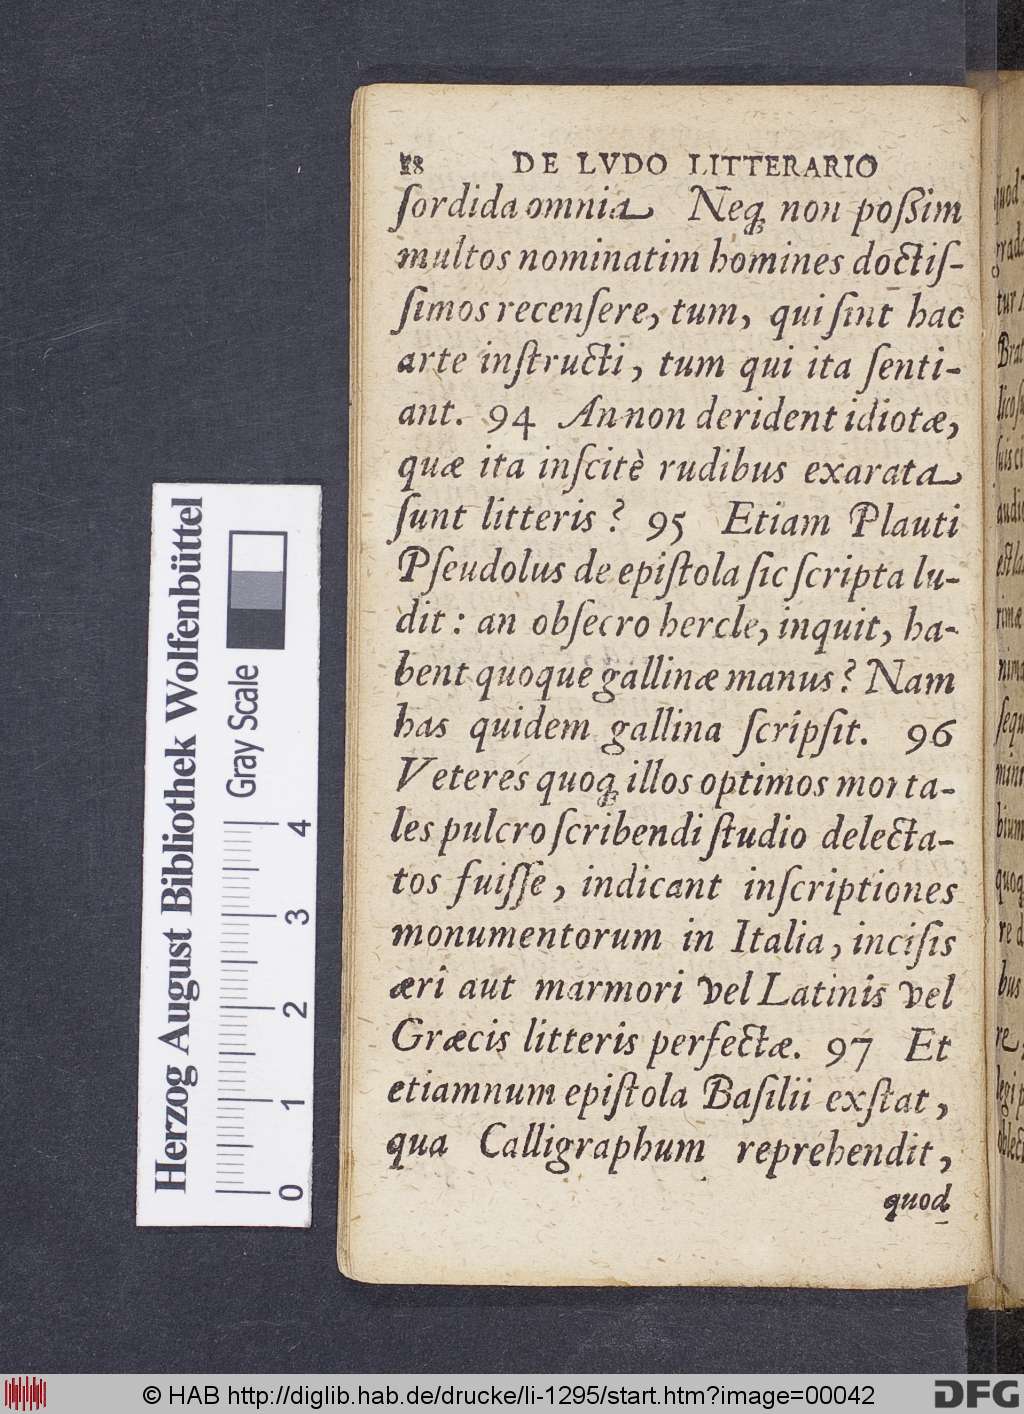 18 DE LVDO LITTERARIO
ſordida omnia Neq; non poſsim
multos nominatim homines doctiſ-
ſimos recenſere, tum, qui ſint hac
arte inſtructi, tum qui ita ſenti-
ant. 94 An non derident idiotæ,
quæ ita inſcitè rudibus exarata
ſunt litteris? 95 Etiam Plauti
Pſeudolus de epiſtola ſic ſcripta lu-
dit: an obſecro hercle, inquit, ha-
bent quoque gallinæ manus? Nam
has quidem gallina ſcripſit. 96
Veteres quoq; illos optimos morta-
les pulcro ſcribendi ſtudio delecta-
tos fuiſſe, indicant inſcriptiones
monumentorum in Italia, inciſis
æri aut marmori vel Latinis vel
Græcis litteris perfectæ. 97 Et
etiamnum epiſtola Baſilii exſtat,
qua Calligraphum reprehendit,
quod
Herzog August Bibliothek Wolfenbüttel
Gray Scale
0 1 2 3 4
© HAB http://diglib.hab.de/drucke/li-1295/start.htm?image=00042
DFG